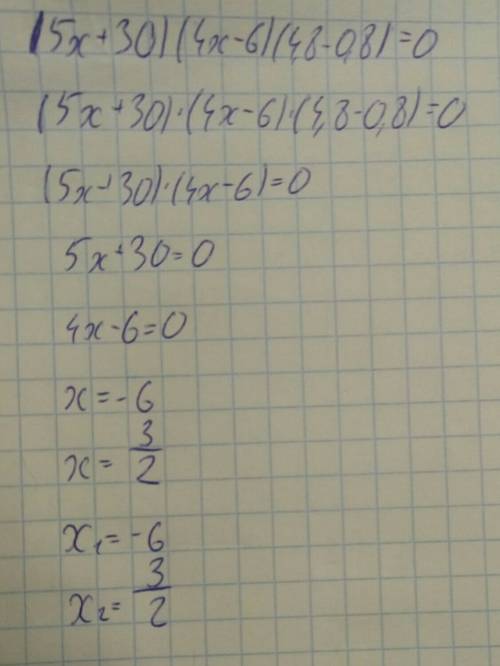 (5x+30)(4x-6)(4,8-0,8)=0
(5x+30)·(4x-6)·(4,8-0,8)=0
(5x+30)·(4x-6)=0
5x+30=0
4x-6=0
x=-6
x=3/2
x₁=-6
x₂=3/2